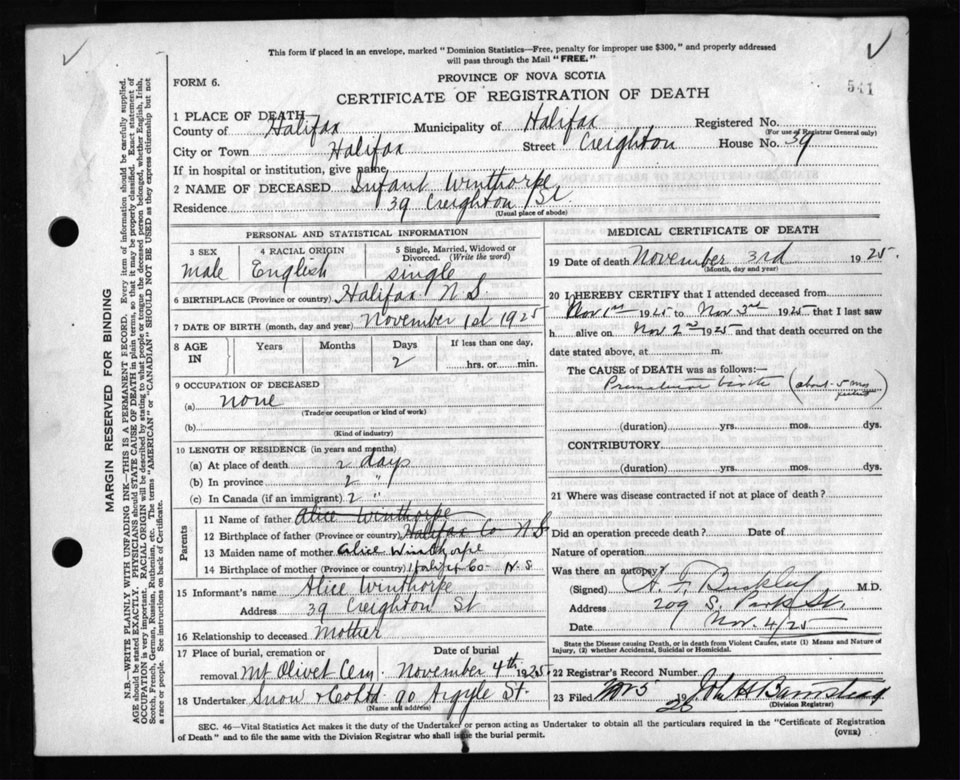 This form if placed in an envelope, marked "Dominion Statistics—Free, penalty for improper use $300," and properly addressed
will pass through the Mail "FREE."
FORM 6.
PROVINCE OF NOVA SCOTIA
541
CERTIFICATE OF REGISTRATION OF DEATH
1 PLACE OF DEATH
County of Halifax Municipality of Halifax Registered No.
(For use of Registrar General only)
City or Town Halifax Street Creighton House No. 39
If in hospital or institution, give name
2 NAME OF DECEASED Infant Winthorpe
Residence 39 Creighton St.
(Usual place of abode)
PERSONAL AND STATISTICAL INFORMATION
3 SEX 4 RACIAL ORIGIN 5 Single, Married, Widowed or Divorced. (Write the word)
Male English single
6 BIRTHPLACE (Province or country) Halifax N.S.
7 DATE OF BIRTH (month, day and year) November 1st 1925
8 AGE IN Years Months Days If less than one day,
2 hrs. or min.
9 OCCUPATION OF DECEASED
(a) none
(Trade or occupation or kind of work)
(b)
(Kind of industry)
10 LENGTH OF RESIDENCE (in years and months)
(a) At place of death 2 days
(b) In province 2 "
(c) In Canada (if an immigrant) 2 "
Parents
11 Name of father Alice Winthorpe
12 Birthplace of father (Province or country) Halifax Co N S
13 Maiden name of mother Alice Winthorpe
14 Birthplace of mother (Province or country) Halifax Co- N.S.
15 Informant's name Alice Winthorpe
Address 39 Creighton St
16 Relationship to deceased Mother
17 Place of burial, cremation or removal Date of burial
Mt Olivet Cem. November 4th 1925.
18 Undertaker Snow & Co Ltd 90 Argyle St.
(Name and address)
MEDICAL CERTIFICATE OF DEATH
19 Date of death November 3rd 1925.
(Month, day and year)
20 I HEREBY CERTIFY that I attended deceased from
Nov 1st 1925 to Nov 3rd 1925 that I last saw
h alive on Nov 2nd 1925 and that death occurred on the
date stated above, at m.
The CAUSE of DEATH was as follows:—
Premature birth (about 5 mos
(duration) yrs. mos. dys.
CONTRIBUTORY
(duration) yrs. mos. dys.
21 Where was disease contracted if not at place of death?
Did an operation precede death? Date of
Nature of operation
Was there an autopsy?
(Signed) M.D.
Address 209 S. Park St.
Date Nov. 4/25
State the Disease causing Death, or in death from Violent Causes, state (1) Means and Nature of
Injury, (2) whether Accidental, Suicidal or Homicidal.
22 Registrar's Record Number
23 Filed Nov 5 19
(Division Registrar)
SEC. 46—Vital Statistics Act makes it the duty of the Undertaker or person acting as Undertaker to obtain all the particulars required in the "Certificate of Registration
of Death" and to file the same with the Division Registrar who shall issue the burial permit.
(OVER)
MARGIN RESERVED FOR BINDING
N.B.—WRITE PLAINLY WITH UNFADING INK—THIS IS A PERMANENT RECORD. Every item of information should be carefully supplied.
AGE should be stated EXACTLY. PHYSICIANS should STATE CAUSE OF DEATH in plain terms, so that it may be properly classified. Exact statement of
OCCUPATION is very important. RACIAL ORIGIN will be described by stating to what people or tongue the deceased person belonged, whether English, Irish,
Scotch, French, German, Russian, Ruthenian, etc. The terms "AMERICAN" or "CANADIAN" SHOULD NOT BE USED as they express citizenship but not
a race or people. See instructions on back of Certificate.